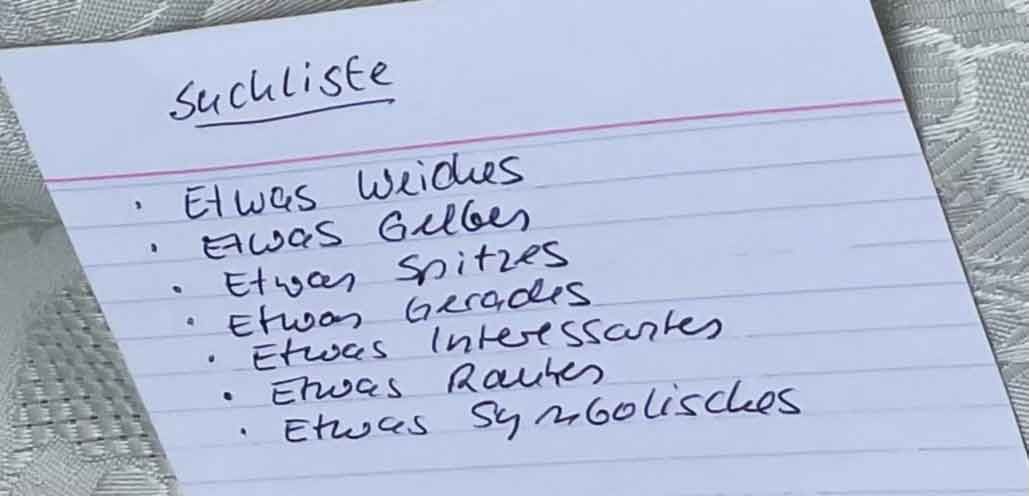 Suchliste
· Etwas Weiches
· Etwas Gelbes
· Etwas Spitzes
· Etwas Gerades
· Etwas Interessantes
· Etwas Rauhes
· Etwas Symbolisches